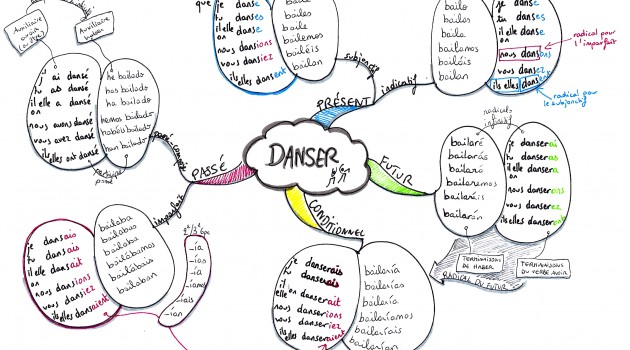 Auxiliaire
avoir
Auxiliaire
haber
j' ai dansé
tu as dansé
il elle a dansé
on
nous avons dansé
vous avez dansé
ils elles ont dansé
he bailado
has bailado
ha bailado
hemos bailado
habéis bailado
han bailado
participe
passé
passé-composé
que
je danse
tu danses
il elle danse
on
nous dansions
vous dansiez
ils elles dansent
baile
bailes
baile
bailemos
bailéis
bailen
subjonctif
indicatif
PRÉSENT
bailo
bailas
baila
bailamos
bailáis
bailan
je danse
tu danses
il elle danse
on
nous dansons
vous dansez
ils elles dansent
radical pour
l'imparfait
radical pour
le subjonctif
DANSER
PASSÉ
FUTUR
CONDITIONNEL
imparfait
je dansais
tu dansais
il elle dansait
on
nous dansions
vous dansiez
ils elles dansaient
bailaba
bailabas
bailaba
bailábamos
bailabais
bailaban
-ía
-ías
-ía
-íais
-ían
radicals
infinitif
bailaré
bailarás
bailará
bailaremos
bailaréis
bailarán
je danserai
tu danseras
il elle dansera
on
nous danserons
vous danserez
ils elles danseront
TERMINAISONS
DE HABER
TERMINAISONS
DU VERBE AVOIR
RADICAL DU FUTUR
je danserais
tu danserais
il elle danserait
on
nous danserions
vous danseriez
ils elles danseraient
bailaría
bailarías
bailaría
bailaríamos
bailaríais
bailarían